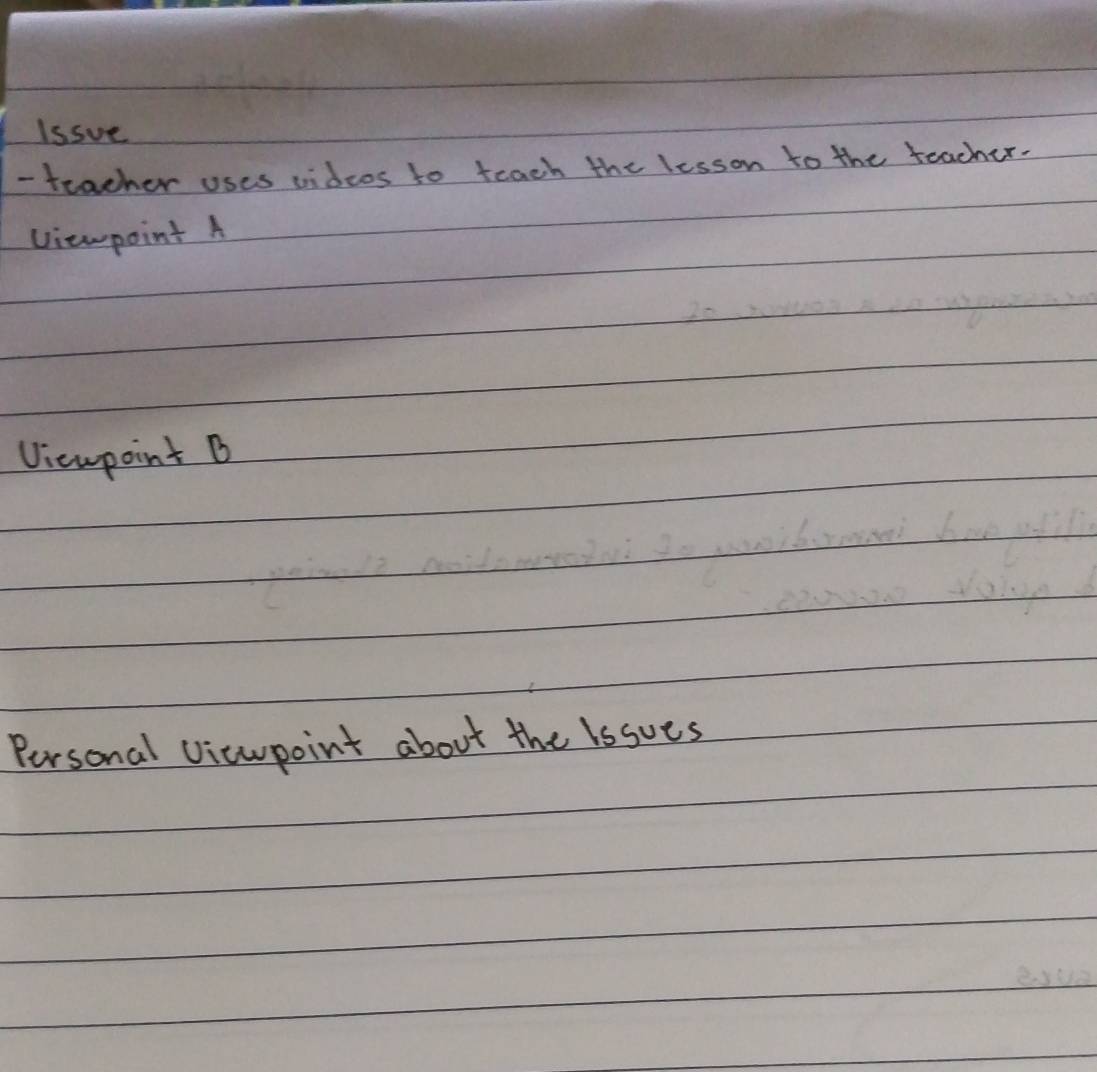 Issue
- teacher uses videos to teach the lesson to the teacher.
Viewpoint A
Viewpoint B
Personal Viewpoint about the Issues